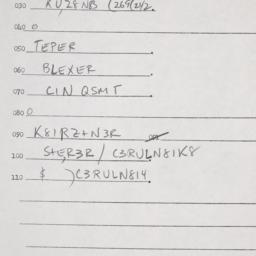 030 KU28NB (269/2/2.
040 0
050 TEPER
060 BLEXER
070 CIN QSMT
080 0
090 K81RZ+N3R
100 S+ER3R / C3RULN81K8
110 $ )C3RULN814